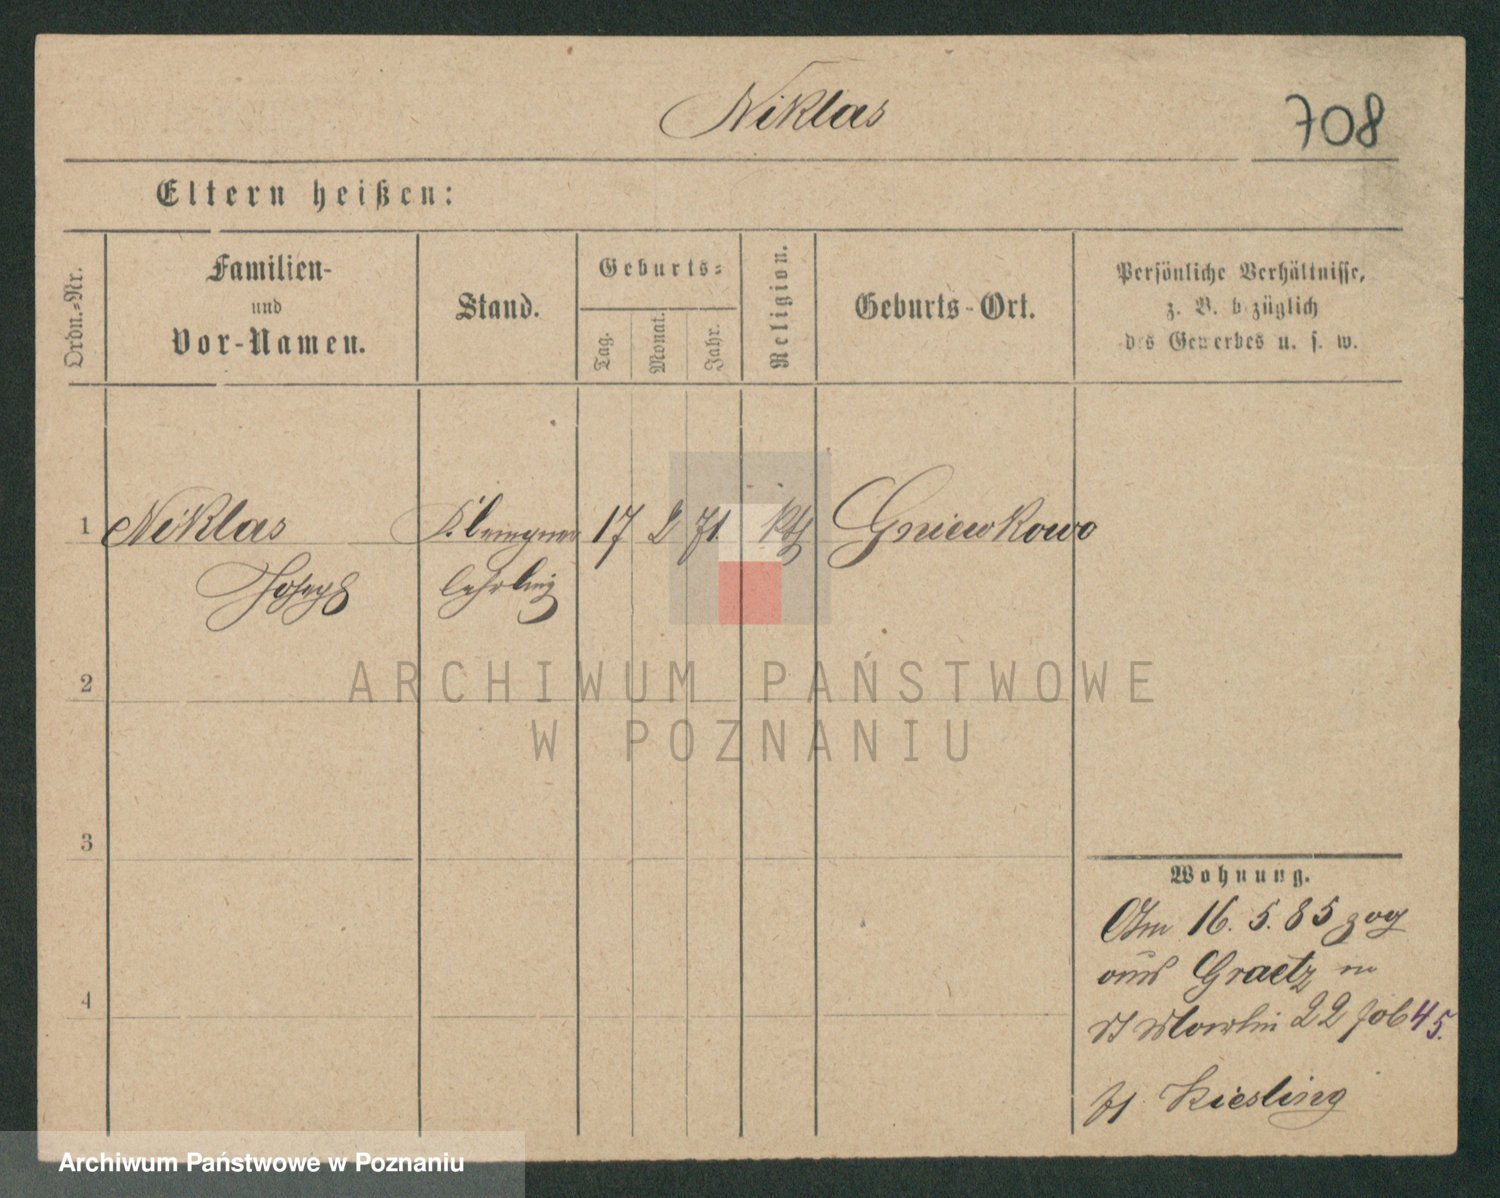 Niklas
708
Eltern heißen:
Ordn.-Nr.
Familien-
und
Vor-Namen.
Stand.
Geburts-
Tag.
Monat.
Jahr.
Religion.
Geburts-Ort.
Persönliche Verhältnisse,
z. B. bezüglich
des Gewerbes u. s. w.
1 Niklas 17 2 71. kth Gniewkowo
Joseph lehrling
2
3
4
Wohnung.
Am 16. 5. 85 zog
aus Graetz
22 45.
Kiesling
ARCHIWUM PAŃSTWOWE
W POZNANIU
Archiwum Państwowe w Poznaniu